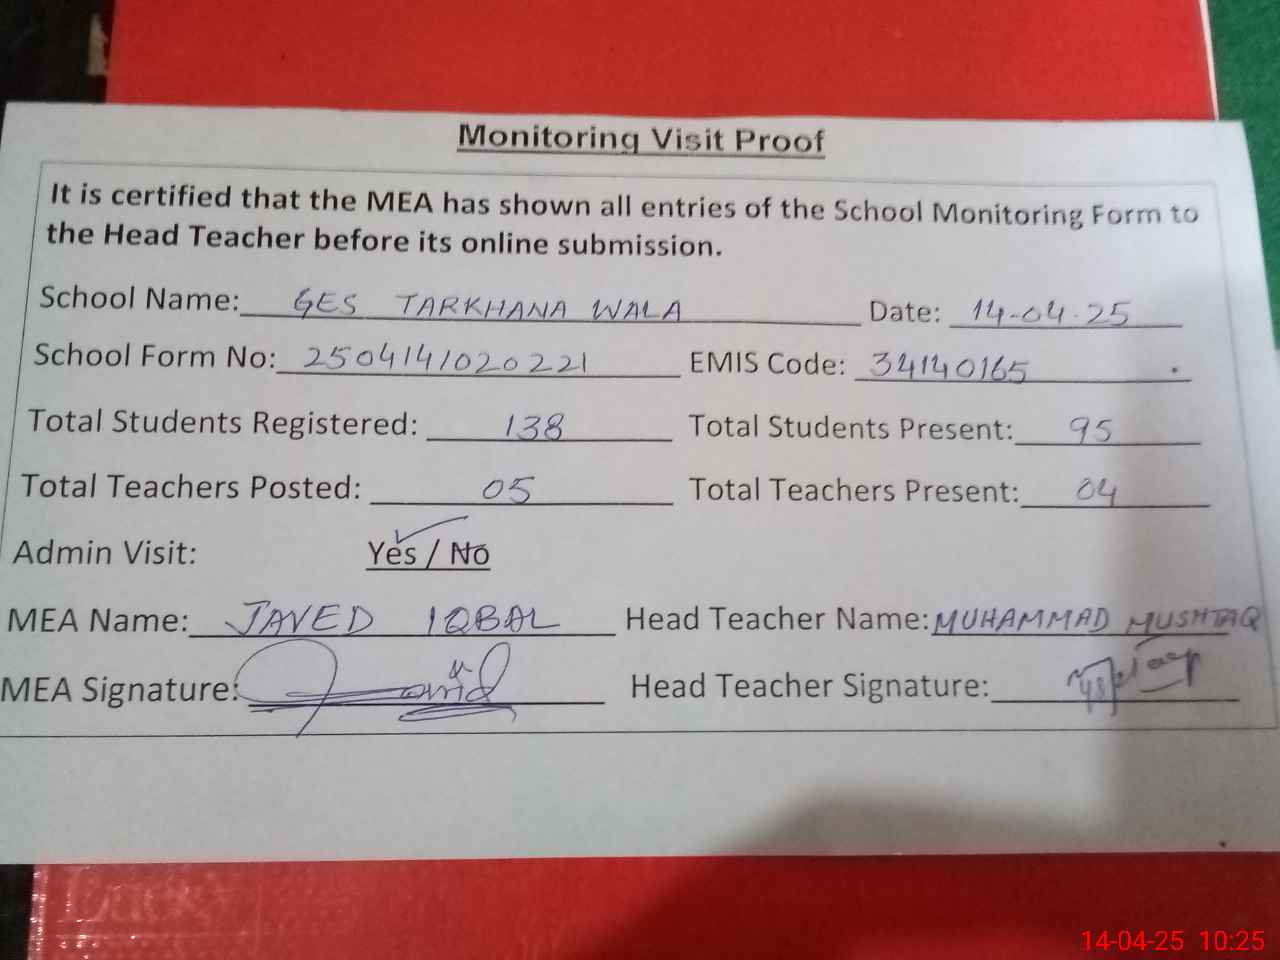 Monitoring Visit Proof
It is certified that the MEA has shown all entries of the School Monitoring Form to
the Head Teacher before its online submission.
School Name: GES TARKHANA WALA Date: 14-04-25
School Form No: 2504141020221 EMIS Code: 34140165
Total Students Registered: 138 Total Students Present: 95
Total Teachers Posted: 05 Total Teachers Present: 04
Admin Visit: Yes / No
MEA Name: JAVED IQBAL Head Teacher Name: MUHAMMAD MUSHTAQ
MEA Signature: Head Teacher Signature:
14-04-25 10:25